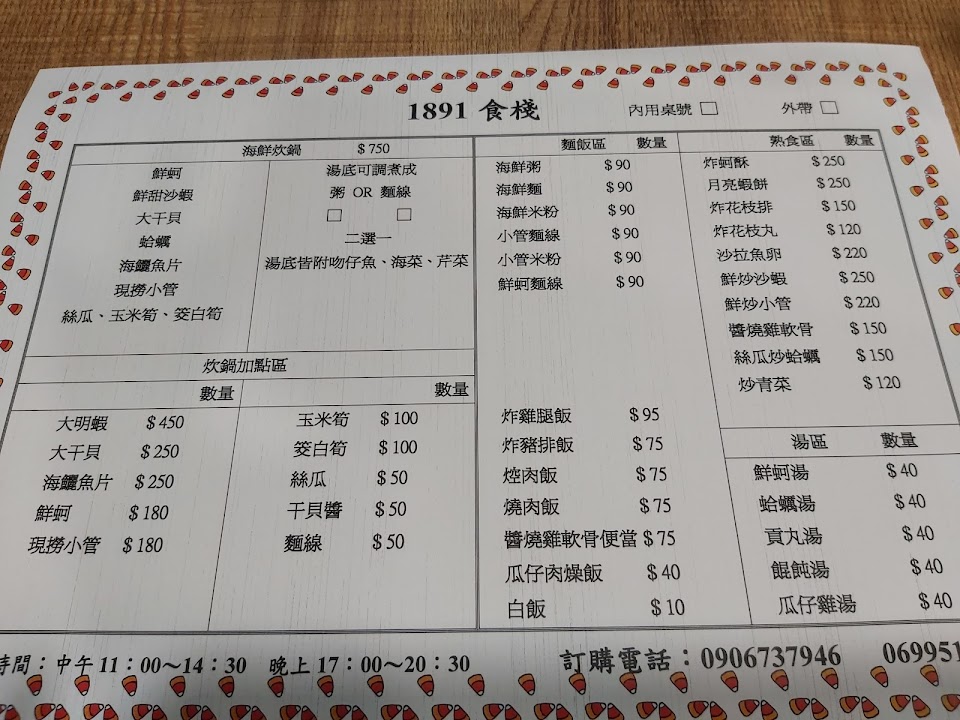 1891 食棧
內用桌號 □ 外帶 □
海鮮炊鍋 $750
鮮蚵
鮮甜沙蝦
大干貝
蛤蠣
海鱺魚片
現撈小管
絲瓜、玉米筍、筊白筍
湯底可調煮成
粥 OR 麵線
□ □
二選一
湯底皆附吻仔魚、海菜、芹菜
炊鍋加點區
數量
大明蝦 $450
大干貝 $250
海鱺魚片 $250
鮮蚵 $180
現撈小管 $180
數量
玉米筍 $100
筊白筍 $100
絲瓜 $50
干貝醬 $50
麵線 $50
麵飯區 數量
海鮮粥 $90
海鮮麵 $90
海鮮米粉 $90
小管麵線 $90
小管米粉 $90
鮮蚵麵線 $90
炸雞腿飯 $95
炸豬排飯 $75
焢肉飯 $75
燒肉飯 $75
醬燒雞軟骨便當 $75
瓜仔肉燥飯 $40
白飯 $10
熟食區 數量
炸蚵酥 $250
月亮蝦餅 $250
炸花枝排 $150
炸花枝丸 $120
沙拉魚卵 $220
鮮炒沙蝦 $250
鮮炒小管 $220
醬燒雞軟骨 $150
絲瓜炒蛤蠣 $150
炒青菜 $120
湯區 數量
鮮蚵湯 $40
蛤蠣湯 $40
貢丸湯 $40
餛飩湯 $40
瓜仔雞湯 $40
時間：中午 11：00～14：30 晚上 17：00～20：30
訂購電話：0906737946 069951